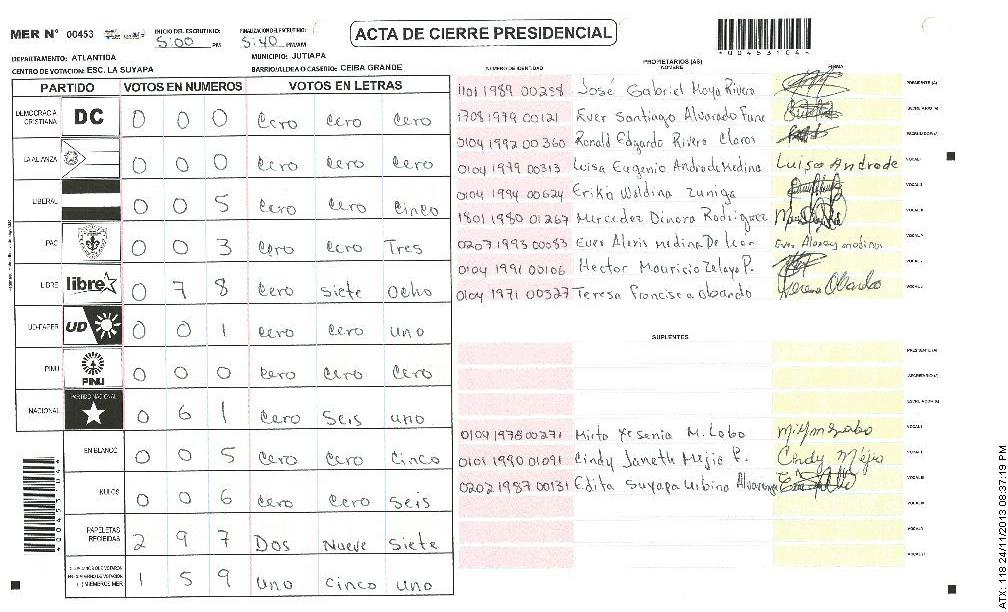 MER N° 00453
INICIO DEL ESCRUTINIO: 5:00 PM
FINALIZACION DEL ESCRUTINIO: 5:40 PM/AM
ACTA DE CIERRE PRESIDENCIAL
*00453104*
DEPARTAMENTO: ATLANTIDA
MUNICIPIO: JUTIAPA
CENTRO DE VOTACION: ESC. LA SUYAPA
BARRIO/ALDEA O CASERIO: CEIBA GRANDE
PARTIDO VOTOS EN NUMEROS VOTOS EN LETRAS
DEMOCRACIA CRISTIANA DC 0 0 0 cero cero cero
0 0 0 cero cero cero
LIBERAL 0 0 5 cero cero cinco
PAC 0 0 3 cero cero Tres
LIBRE libre 0 7 8 cero siete ocho
UD-FAPER UD 0 0 1 cero cero uno
PINU PINU 0 0 0 cero cero cero
NACIONAL PARTIDO NACIONAL 0 6 1 cero seis uno
EN BLANCO 0 0 5 cero cero cinco
NULOS 0 0 6 cero cero seis
PAPELETAS RECIBIDAS 2 9 7 Dos Nueve siete
1 5 9 uno cinco uno
NUMERO DE IDENTIDAD
PROPIETARIOS (AS)
NOMBRE
FIRMA
1101 1989 00258 José Gabriel Moya Rivera PRESIDENTE (A)
1708 1979 00121 Ever Santiago Alvarado Fune SECRETARIO (A)
0104 1992 00360 Ronald Edgardo Rivera Claros ESCRUTADOR (A)
0104 1979 00313 Luisa Eugenio Andrade Medina Luisa Andrade VOCAL I
0104 1994 00624 Erika Waldina Zuniga
1801 1980 01267 Mercedez Dinora Rodriguez
0207 1993 00083 Ever Alexis Medina De Leon
0104 1991 00106 Hector Mauricio Zelaya P.
0104 1971 00327 Teresa Francisca Obando
SUPLENTES
PRESIDENTE (A)
SECRETARIO (A)
ESCRUTADOR (A)
0104 1978 00271 Mirta Yesenia M. Lobo VOCAL I
0101 1990 01091 Cindy Janeth Mejia P. Cindy Mejia
0202 1987 00131 Edita Suyapa Urbina Alvarenga
*00453104*
ATX: 118 24/11/2013 08:37:19 PM